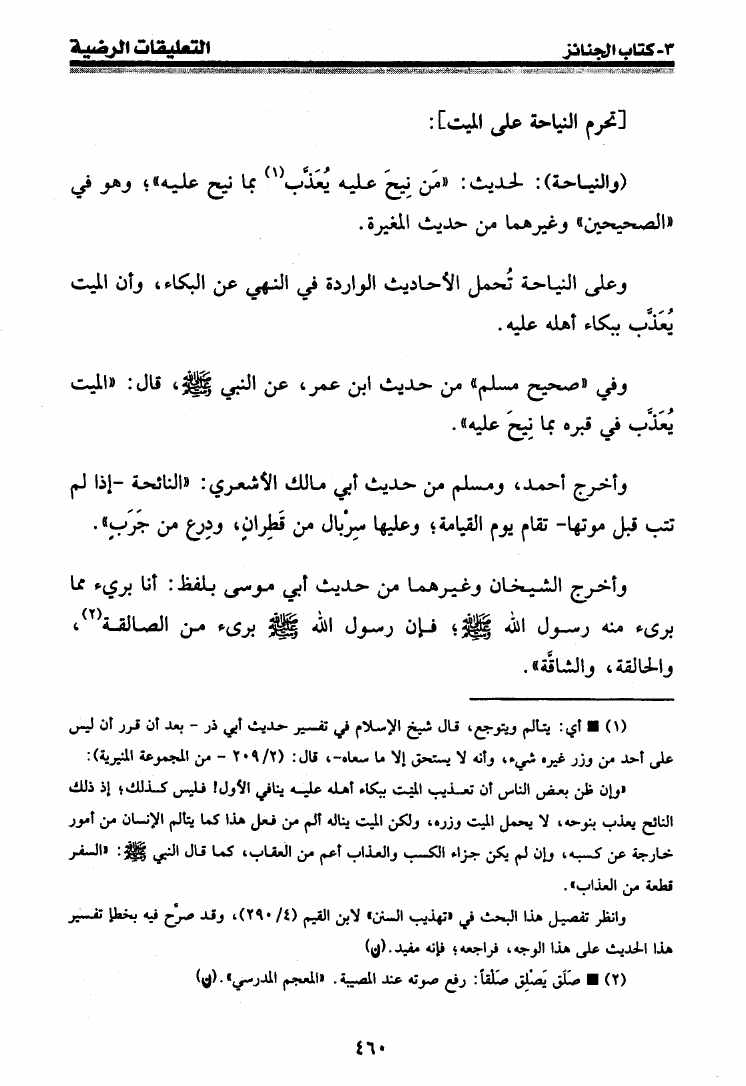 ٣-كتاب الجنائز
التعليقات الرضية
[تحرم النياحة على الميت]:
(والنياحة): لحديث: «مَن نِيحَ عليه يُعَذَّب(١) بما نيح عليه»؛ وهو في
«الصحيحين» وغيرهما من حديث المغيرة.
وعلى النياحة تُحمل الأحاديث الواردة في النهي عن البكاء، وأن الميت
يُعَذَّب ببكاء أهله عليه.
وفي «صحيح مسلم» من حديث ابن عمر، عن النبي ﷺ، قال: «الميت
يُعَذَّب في قبره بما نِيحَ عليه».
وأخرج أحمد، ومسلم من حديث أبي مالك الأشعري: «النائحة -إذا لم
تتب قبل موتها- تقام يوم القيامة؛ وعليها سِرْبال من قَطِرانٍ، ودِرع من جَرَبٍ».
وأخرج الشيخان وغيرهما من حديث أبي موسى بلفظ: أنا بريء مما
برىء منه رسول الله ﷺ؛ فإن رسول الله ﷺ برىء من الصالقة(٢)،
والحالقة، والشاقَّة».
(١) ■ أي: يتألم ويتوجع، قال شيخ الإسلام في تفسير حديث أبي ذر - بعد أن قرر أن ليس
على أحد من وزر غيره شيء، وأنه لا يستحق إلا ما سعاه-، قال: (٢٠٩/٢ - من المجموعة المنيرية):
«وإن ظن بعض الناس أن تعذيب الميت ببكاء أهله عليه ينافي الأول! فليس كذلك؛ إذ ذلك
النائح يعذب بنوحه، لا يحمل الميت وزره، ولكن الميت يناله ألم من فعل هذا كما يتألم الإنسان من أمور
خارجة عن كسبه، وإن لم يكن جزاء الكسب والعذاب أعم من العقاب، كما قال النبي ﷺ: «السفر
قطعة من العذاب».
وانظر تفصيل هذا البحث في «تهذيب السنن» لابن القيم (٢٩٠/٤)، وقد صرَّح فيه بخطإ تفسير
هذا الحديث على هذا الوجه، فراجعه؛ فإنه مفيد.(ن)
(٢) ■ صَلَق يَصْلِق صَلْقاً: رفع صوته عند المصيبة. «المعجم المدرسي».(ن)
٤٦٠